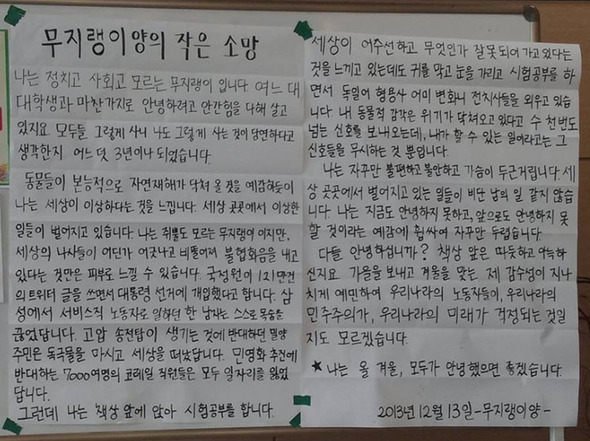 무지랭이양의 작은 소망
나는 정치고 사회고 모르는 무지랭이 입니다. 여느 대
대학생과 마찬가지로 안녕하려고 안간힘을 다해 살고
있지요. 모두들 그렇게 사니 나도 그렇게 사는 것이 당연하다고
생각한지 어느 덧 3년이나 되었습니다.
동물들이 본능적으로 자연재해가 닥쳐 올 것을 예감하듯이
나는 세상이 이상하다는 것을 느낍니다. 세상 곳곳에서 이상한
일들이 벌어지고 있습니다. 나는 쥐뿔도 모르는 무지랭이 이지만,
세상의 나사들이 어딘가 어긋나고 비틀어져 불협화음을 내고
있다는 것만은 피부로 느낄 수 있습니다. 국정원이 121만건
의 트위터 글을 쓰면서 대통령 선거에 개입했다고 합니다. 삼
성에서 서비스직 노동자로 일하던 한 남자는 스스로 목숨을
끊었답니다. 고압 송전탑이 생기는 것에 반대하던 밀양
주민은 독극물을 마시고 세상을 떠났답니다. 민영화 추진에
반대하는 7000여명의 코레일 직원들은 모두 일자리를 잃었
답니다.
그런데 나는 책상 앞에 앉아 시험공부를 합니다.
세상이 어수선하고 무엇인가 잘못되어 가고 있다는
것을 느끼고 있는데도 귀를 막고 눈을 가리고 시험공부를 하
면서 독일어 형용사 어미 변화니 전치사들을 외우고 있습
니다. 내 동물적 감각은 위기가 닥쳐오고 있다고 수 천번도
넘는 신호를 보내오는데, 내가 할 수 있는 일이라고는 그
신호들을 무시하는 것 뿐입니다.
나는 자꾸만 불편하고 불안하고 가슴이 두근거립니다. 세
상 곳곳에서 벌어지고 있는 일들이 비단 남의 일 같지 않습
니다. 나는 지금도 안녕하지 못하고, 앞으로도 안녕하지 못
할 것이라는 예감에 휩싸여 자꾸만 두렵습니다.
다들 안녕하십니까? 책상 앞은 따뜻하고 아늑하
신지요. 가을을 보내고 겨울을 맞는 제 감수성이 지나
치게 예민하여 우리나라의 노동자들이, 우리나라의
민주주의가, 우리나라의 미래가 걱정되는 것일
지도 모르겠습니다.
★ 나는 올 겨울, 모두가 안녕했으면 좋겠습니다.
2013년 12월 13일 -무지랭이양-